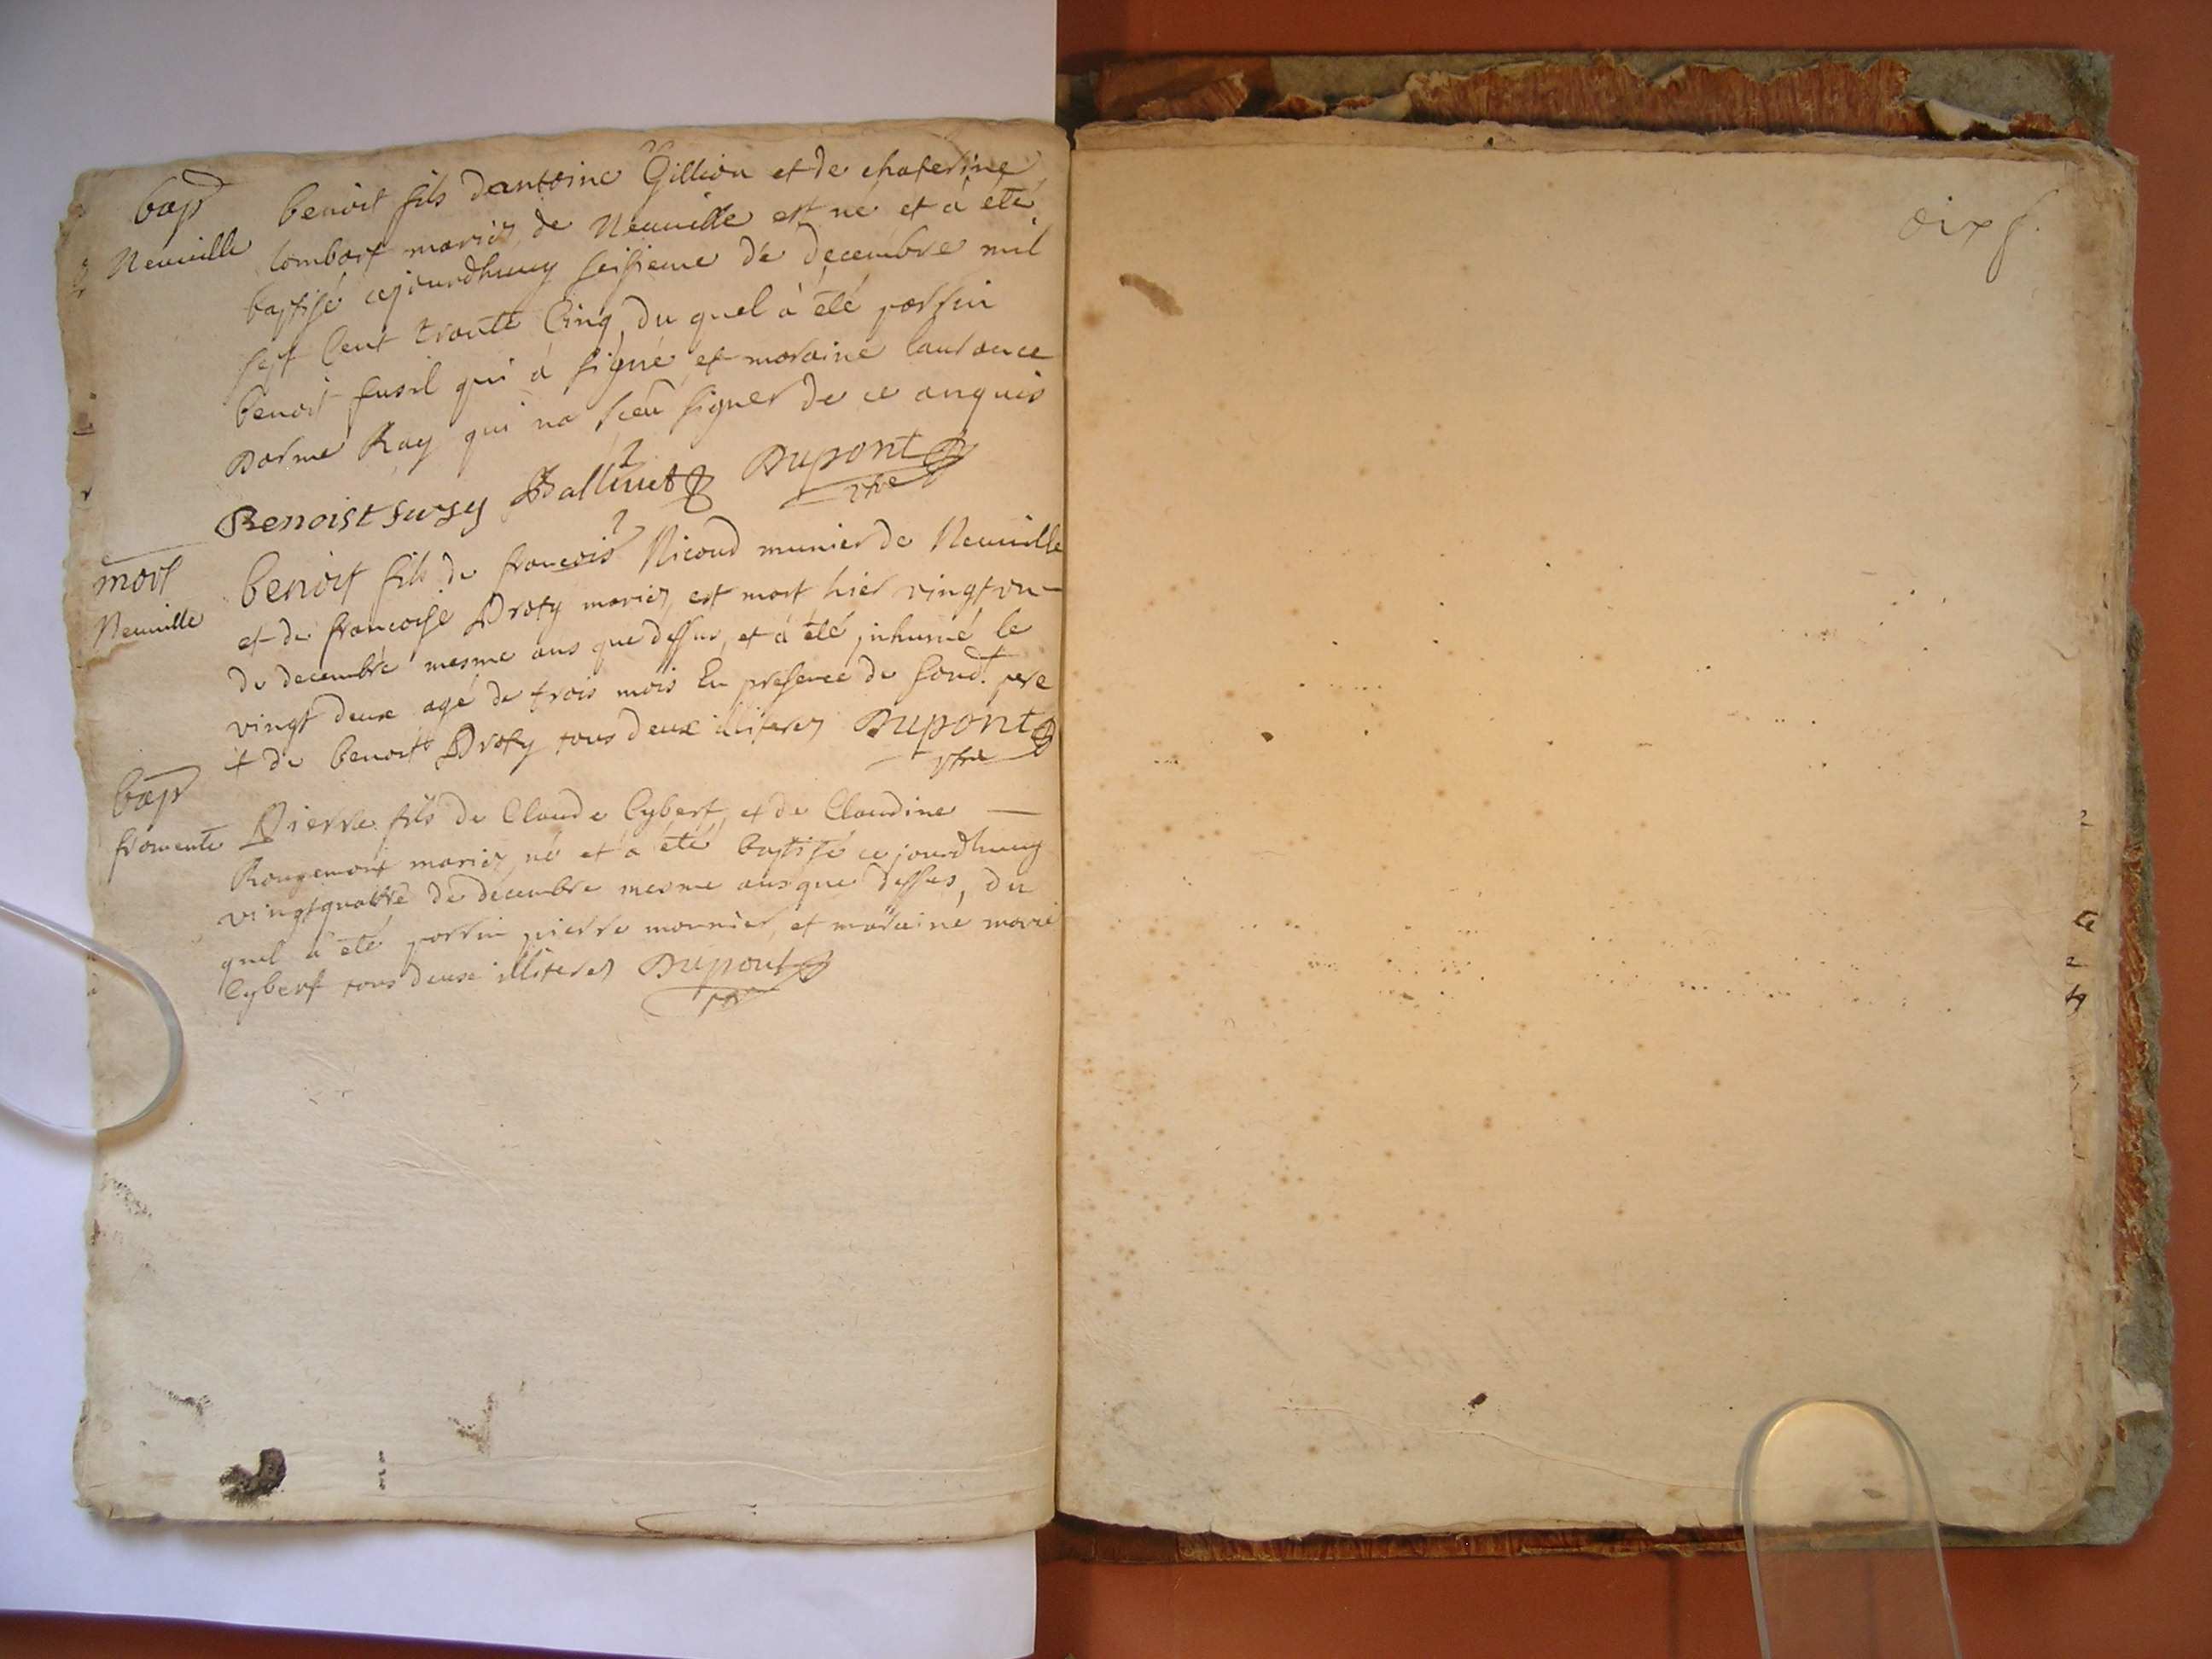 bap
Neuville
benoit fils dantoine Gillion et de chaterine
lombart mariez de Neuville est né et a été
baptisé cejourdhuuy seisieme de decembre mil
sept Cent trante Cinq, du quel à été parrin
benoit fusil qui a signé et maraine laurance
Ray qui na sceu signer de ce anquis
Benoist Dupont
ptre
mort
Neuville
benoit fils de francois Nicoud munier de Neuville
et de francoise Profy mariez, est mort hier vingt un
de decembre mesme ans que dessus, et à été inhumé le
vingt deux agé de trois mois En presence de sond. pere
et de benoit Profy tous deux illiterez Dupont
ptre
bap
fromente
Pierre fils de Claude Cybert, et de Claudine
Rougemont mariez né et a été baptisé cejourdhuuy
vingtquatre de decembre mesme ans que dessus, du
quel a été parrin pierre monnier, et maraine marie
Cybert tous deux illiterez Dupont
ptre
dix f.